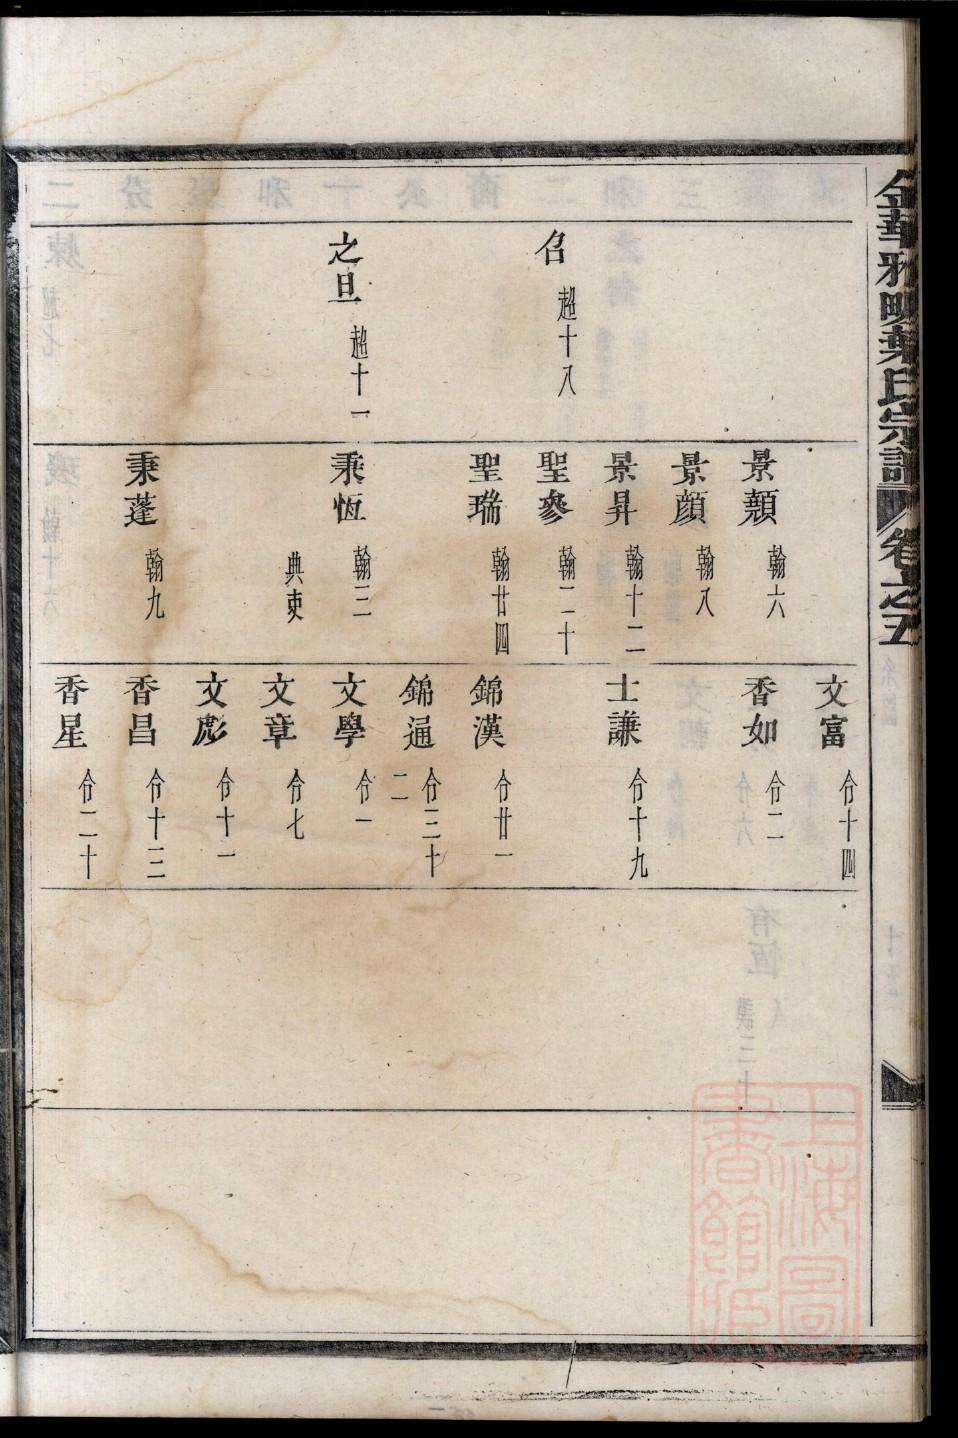 金華雅畈葉氏宗譜 卷之五
名 超十八
之旦 超十一
景顥 翰六
景顔 翰八
景昇 翰十二
聖參 翰二十
聖瑞 翰廿四
秉恆 翰三
典吏
秉蓬 翰九
文富 令十四
香如 令二
士謙 令十九
錦漢 令廿一
錦通 令三十二
文學 令一
文章 令七
文彪 令十一
香昌 令十三
香星 令二十
上海圖書館藏